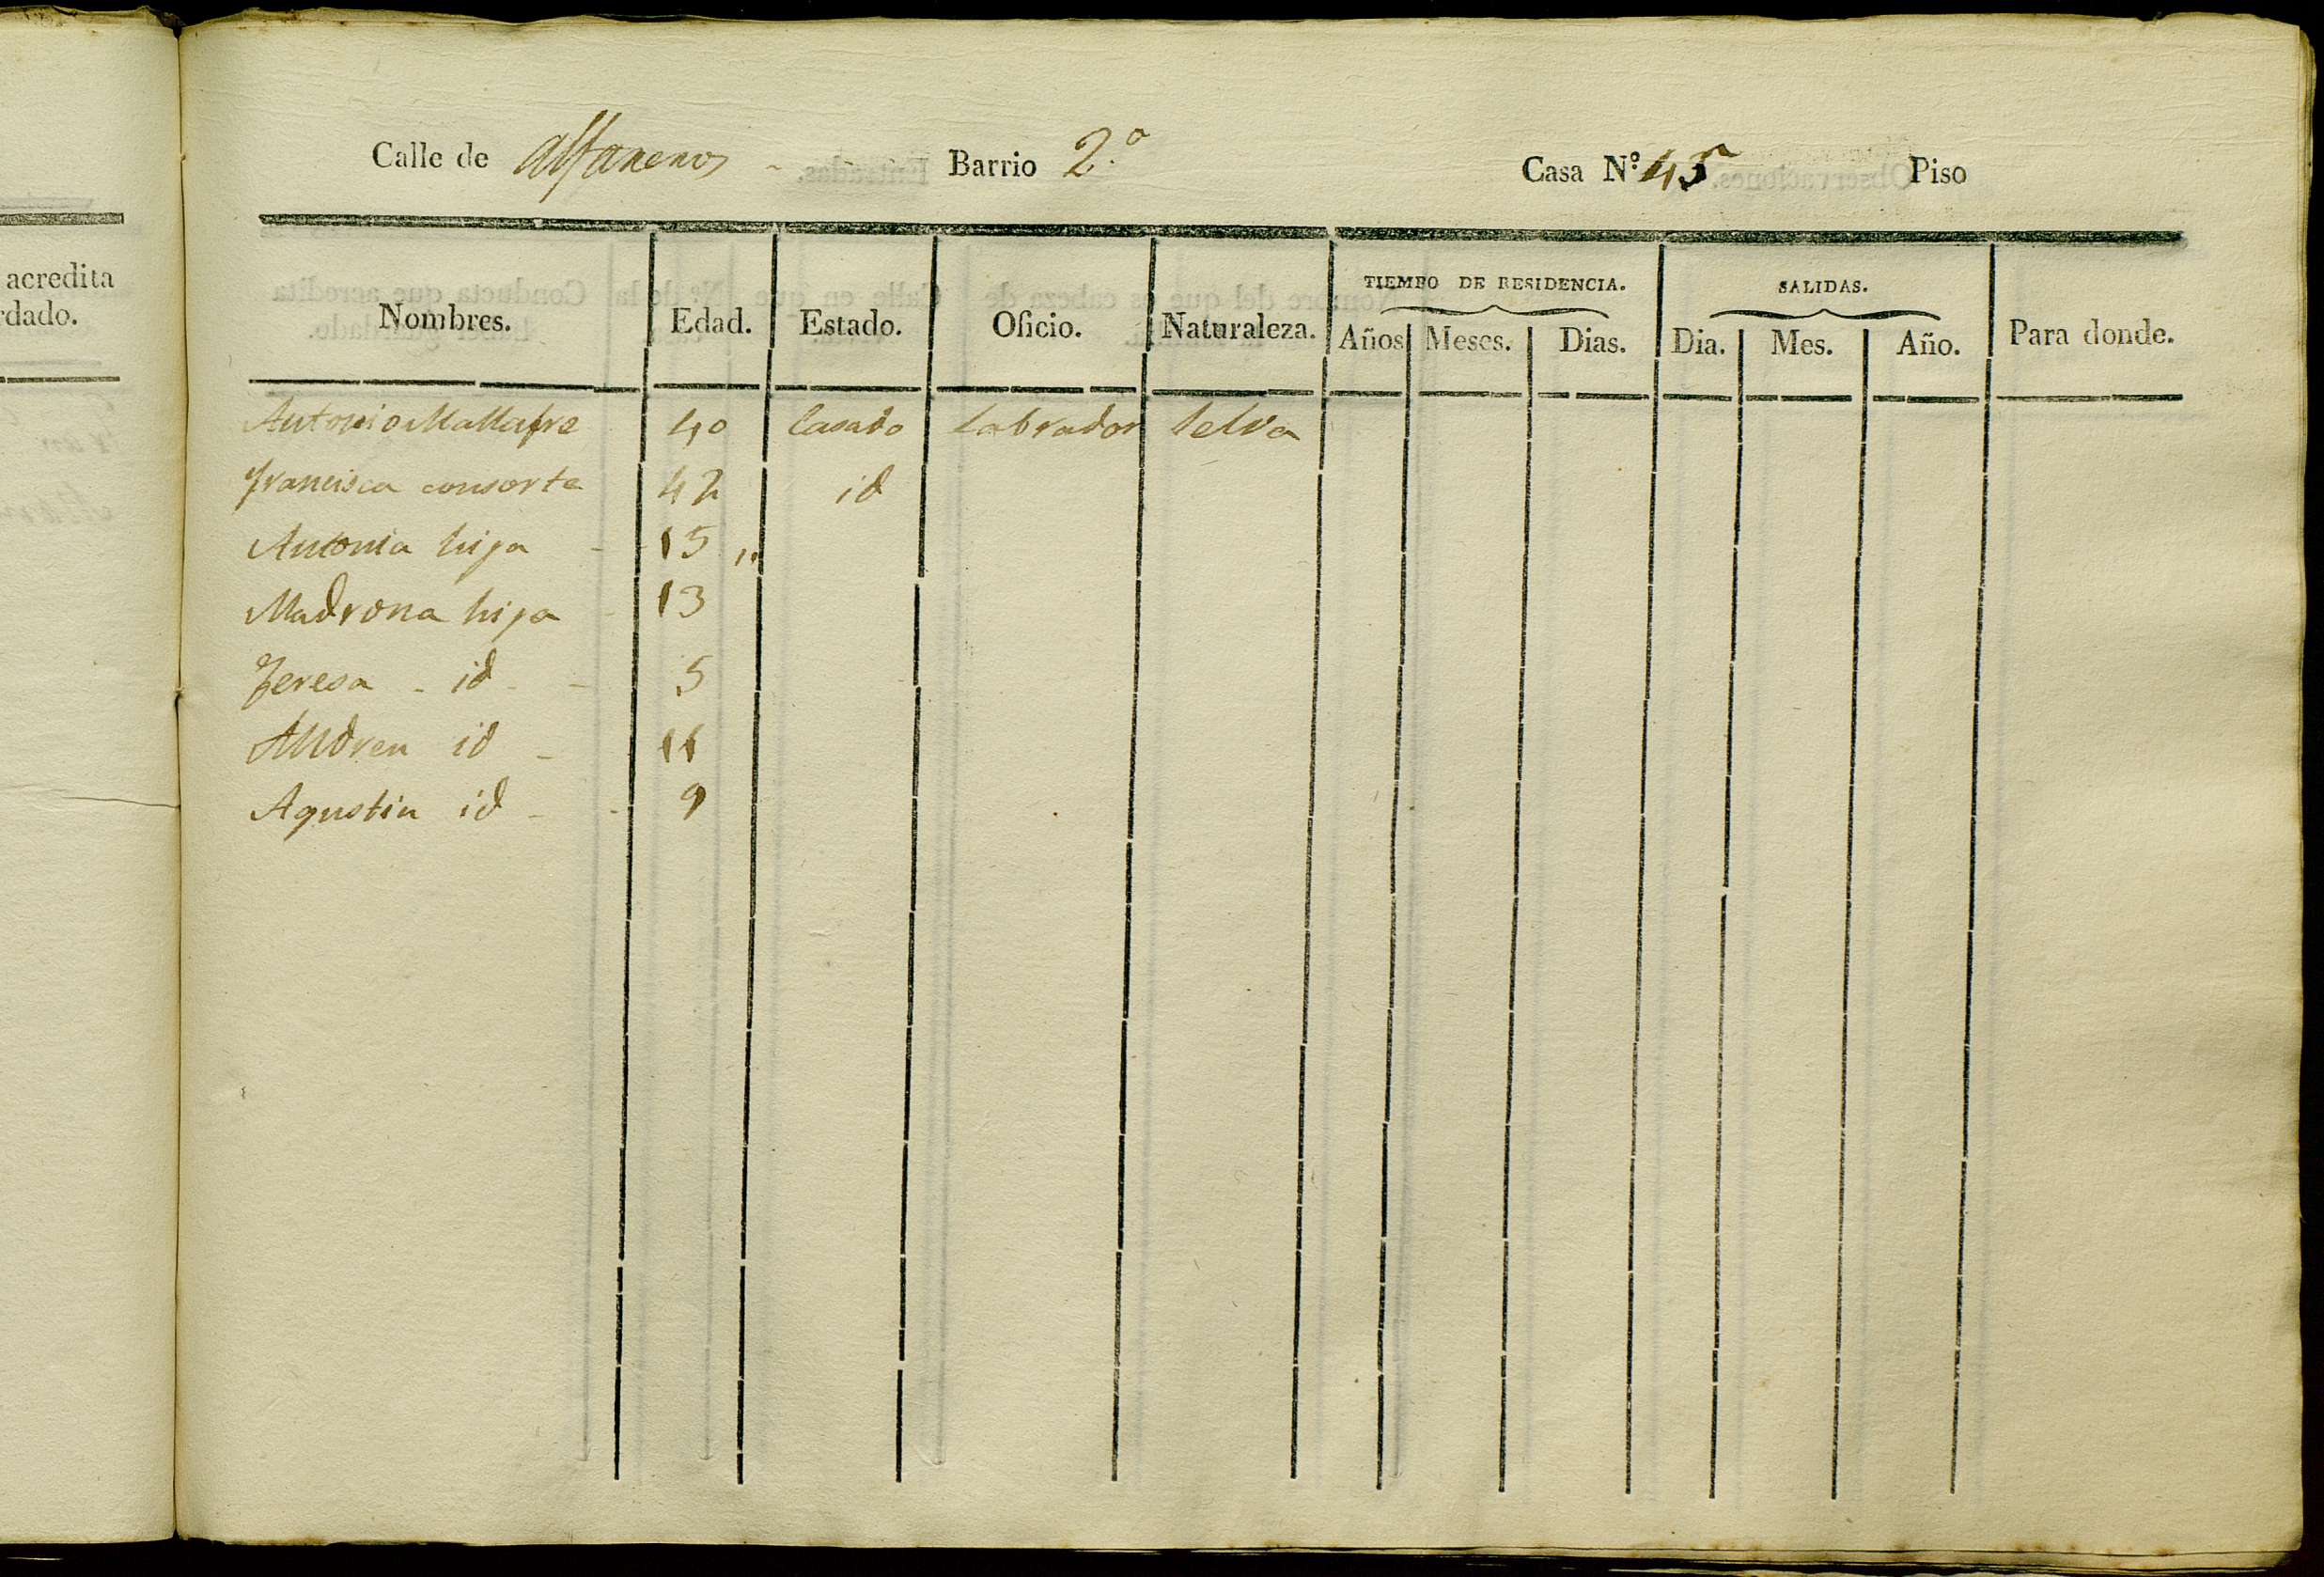 acredita
rdado.
Calle de Alfareros Barrio 2.º Casa N.º 45 Piso
Nombres. Edad. Estado. Oficio. Naturaleza. TIEMPO DE RESIDENCIA. Años Meses. Dias. SALIDAS. Dia. Mes. Año. Para donde.
Antonio Mallafre 40 Casado Labrador Selva
Francisca consorte 42 id
Antonia hija 15
Madrona hija 13
Teresa id 5
Andreu id 11
Agustin id 9